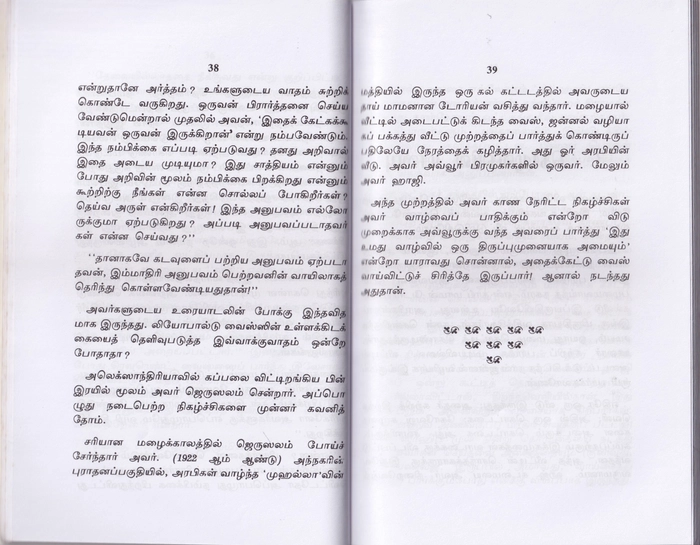 38
என்றுதானே அர்த்தம்? உங்களுடைய வாதம் சுற்றிக்
கொண்டே வருகிறது. ஒருவன் பிரார்த்தனை செய்ய
வேண்டுமென்றால் முதலில் அவன், 'இதைக் கேட்கக்கூ
டியவன் ஒருவன் இருக்கிறான்' என்று நம்பவேண்டும்.
இந்த நம்பிக்கை எப்படி ஏற்படுவது? தனது அறிவால்
இதை அடைய முடியுமா? இது சாத்தியம் என்னும்
போது அறிவின் மூலம் நம்பிக்கை பிறக்கிறது என்னும்
கூற்றிற்கு நீங்கள் என்ன சொல்லப் போகிறீர்கள்?
தெய்வ அருள் என்கிறீர்கள்! இந்த அனுபவம் எல்லோ
ருக்குமா ஏற்படுகிறது? அப்படி அனுபவப்படாதவர்
கள் என்ன செய்வது?''
''தானாகவே கடவுளைப் பற்றிய அனுபவம் ஏற்படா
தவன், இம்மாதிரி அனுபவம் பெற்றவனின் வாயிலாகத்
தெரிந்து கொள்ளவேண்டியதுதான்!''
அவர்களுடைய உரையாடலின் போக்கு இந்தவித
மாக இருந்தது. லியோபால்டு வைஸ்ஸின் உள்ளக்கிடக்
கையைத் தெளிவுபடுத்த இவ்வாக்குவாதம் ஒன்றே
போதாதா?
அலெக்ஸாந்திரியாவில் கப்பலை விட்டிறங்கிய பின்
இரயில் மூலம் அவர் ஜெருஸலம் சென்றார். அப்பொ
ழுது நடைபெற்ற நிகழ்ச்சிகளை முன்னர் கவனித்
தோம்.
சரியான மழைக்காலத்தில் ஜெருஸலம் போய்ச்
சேர்ந்தார் அவர். (1922 ஆம் ஆண்டு) அந்நகரின்
புராதனப்பகுதியில், அரபிகள் வாழ்ந்த 'முஹல்லா'வின்
39
மத்தியில் இருந்த ஒரு கல் கட்டடத்தில் அவருடைய
தாய் மாமனான டோரியன் வசித்து வந்தார். மழையால்
வீட்டில் அடைபட்டுக் கிடந்த வைஸ், ஜன்னல் வழியா
கப் பக்கத்து வீட்டு முற்றத்தைப் பார்த்துக் கொண்டிருப்
பதிலேயே நேரத்தைக் கழித்தார். அது ஓர் அரபியின்
வீடு. அவர் அவ்வூர் பிரமுகர்களில் ஒருவர். மேலும்
அவர் ஹாஜி.
அந்த முற்றத்தில் அவர் காண நேரிட்ட நிகழ்ச்சிகள்
அவர் வாழ்வைப் பாதிக்கும் என்றோ விடு
முறைக்காக அவ்லூருக்கு வந்த அவரைப் பார்த்து 'இது
உமது வாழ்வில் ஒரு திருப்புமுனையாக அமையும்'
என்றோ யாராவது சொன்னால், அதைக்கேட்டு வைஸ்
வாய்விட்டுச் சிரித்தே இருப்பார்! ஆனால் நடந்தது
அதுதான்.